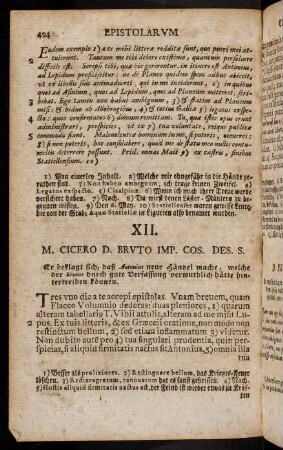 494 EPISTOLARVM
Eodem exemplo 1) a te mihi litteræ redditæ sunt, quo pueri mei at-
tulerunt. Tantum me tibi debere existimo, quantum persolvere
difficile est. Scripsi tibi, quæ hic gererentur. in itinere est Antonius,
ad Lepidum proficiscitur: ne de Planco quidem spem adhuc abiecit,
ut ex libellis suis animadverti, qui in me inciderunt, 2) in quibus
quos ad Asinium, quos ad Lepidum, quos ad Plancum mitteret, scri-
bebat. Ego tamen non habui ambiguum, 3) & statim ad Plancum
misi: & biduo ab Allobrogibus, 4) & totius Gallia 5) legatos exspe-
cto: quos confirmatos 6) domum remittam. Tu, quæ istic opus erunt
administrari, prospicies, ut ex 7) tua voluntate, reique publicæ
commodo fiant. Malevolentiæ hominum in me, si poteris, occurres:
8) si non potueris, hoc consolabere, quod me de statu meo nullis contu-
meliis deterrere possunt. Prid. nonas Maii 9) ex castris, finibus
Statiellensium. 10)
1) Von einerley Inhalt. 2) Welche mir ungefähr in die Hände ge-
rathen sind. 3) Non habeo ambiguum, ich trage keinen Zweifel. 4)
Legatos exspecto. 5) Cisalpinæ. 6) Wenn ich mich ihrer Treue werde
versichert haben. 7) Nach. 8) Du wirst denen Läster-Mäulern be-
gegnen müssen. 9) Den 6. May. 10) Statiellenses waren gewisse Leute,
die von der Stadt, Aquæ Statiellæ in Ligurien also benannt wurden.
XII.
M. CICERO D. BRVTO IMP. COS. DES. S.
Er beklagt sich, daß Antonius neue Händel mache, welche
der Brutus durch gute Verfassung vermuthlich hätte hin-
tertreiben können.
Tres uno die a te accepi epistolas. Vnam brevem, quam
Flacco Volumnio dederas: duas pleniores, 1) quarum
alteram tabellarius T. Vibii attulit, alteram ad me misit Lu-
pus. Ex tuis litteris, & ex Græceii oratione, non modo non
restinctum bellum, 2) sed etiam inflammatum 3) videtur.
Non dubito autē pro 4) tua singulari prudentia, quin per-
spicias, si aliquid firmitatis nactus sit Antonius, 5) omnia illa
tua
1) Besser als prolixiores. 2) Restinguere bellum, das Krieges-Feuer
löschen. 3) Redintegratum, renovatum hat es sonst geheissen. 4) Nach.
5) Hostis aliquid firmitatis nactus est, der Feind ist wieder etwas zu Kräf-
ten